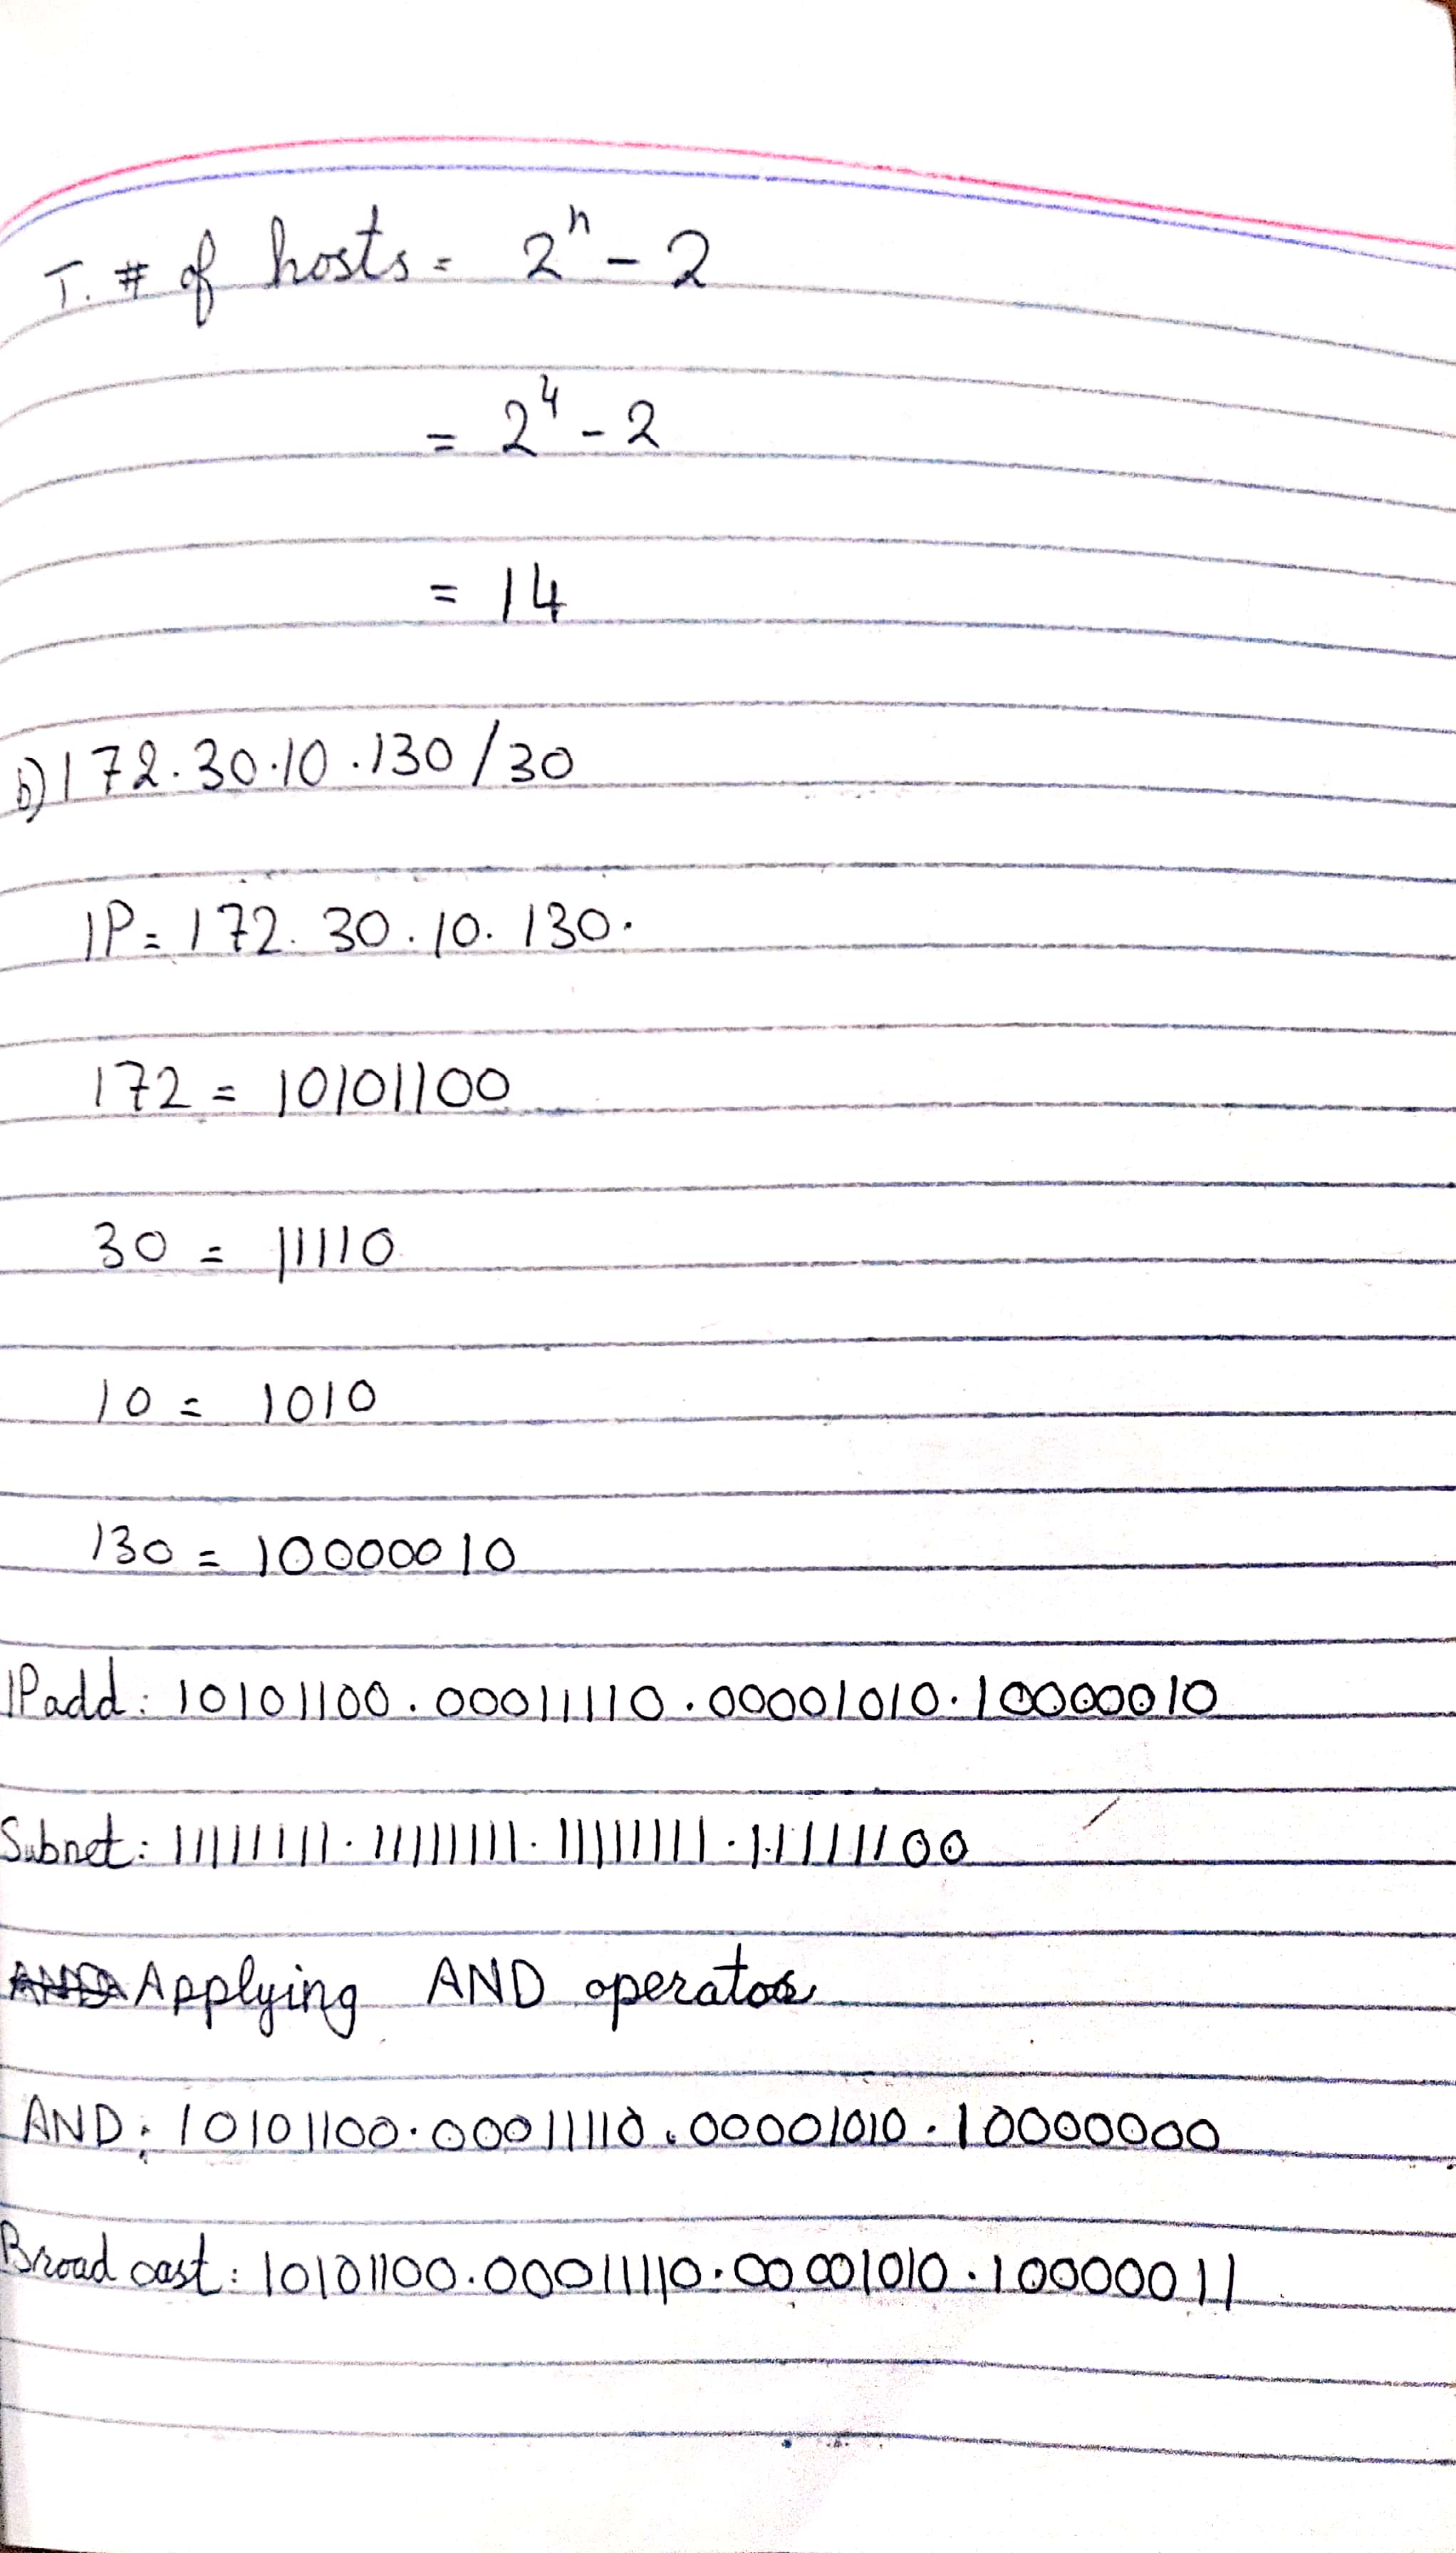 T. # of hosts = 2ⁿ - 2
= 2⁴ - 2
= 14
b) 172.30.10.130/30
IP = 172.30.10.130.
172 = 10101100
30 = 11110
10 = 1010
130 = 10000010
IP add: 10101100.00011110.00001010.10000010
Subnet: 11111111.11111111.11111111.11111100
Applying AND operator
AND: 10101100.00011110.00001010.10000000
Broad cast: 10101100.00011110.00001010.10000011